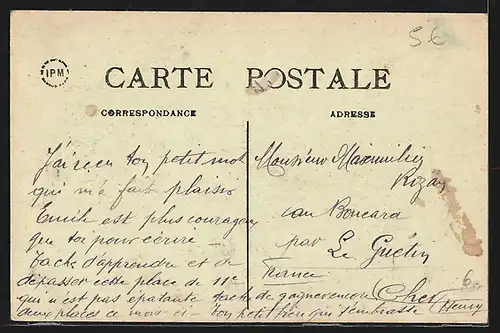 5€
IPM
CARTE POSTALE
CORRESPONDANCE
ADRESSE
J'ai reçu ton petit mot
qui m'a fait plaisir
Emile est plus courageux
que toi pour écrire –
Tache d'apprendre et de
dépasser cette place de 11e
qui n'est pas épatante tache de gagner
deux places ce mois ci – ton petit qui t'embrasse
Henry
Monsieur Maximilien
Rizay
au Boucard
par Le Guétin
France
Cher
6